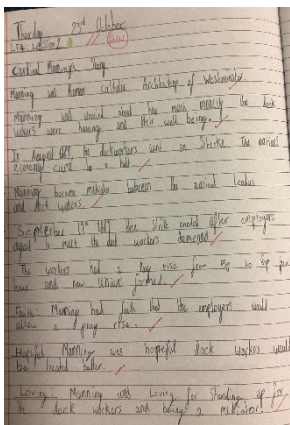 Thursday 23rd October
LFQ session 2
Cardinal Manning's Story
Manning was Roman Catholic Archbishop of Westminster.
Manning was worried about how much the dock
workers were and their well being.
In August 1889 the dockworkers went on strike. The national
economy came to a halt.
Manning became mediator between the national leaders
and dock workers.
September 1889 the strike ended after employers
agreed to meet the dock workers demand
The workers had a Pay rise from 5p to 6p per
hour and new Unions formed.
Faith: Manning had faith that the employers would
allow a pray rise.
Hopeful Manning was hopeful dock workers would
be treated better.
Loving: Manning was Loving for Standing up for
the dock workers and being a mediator.